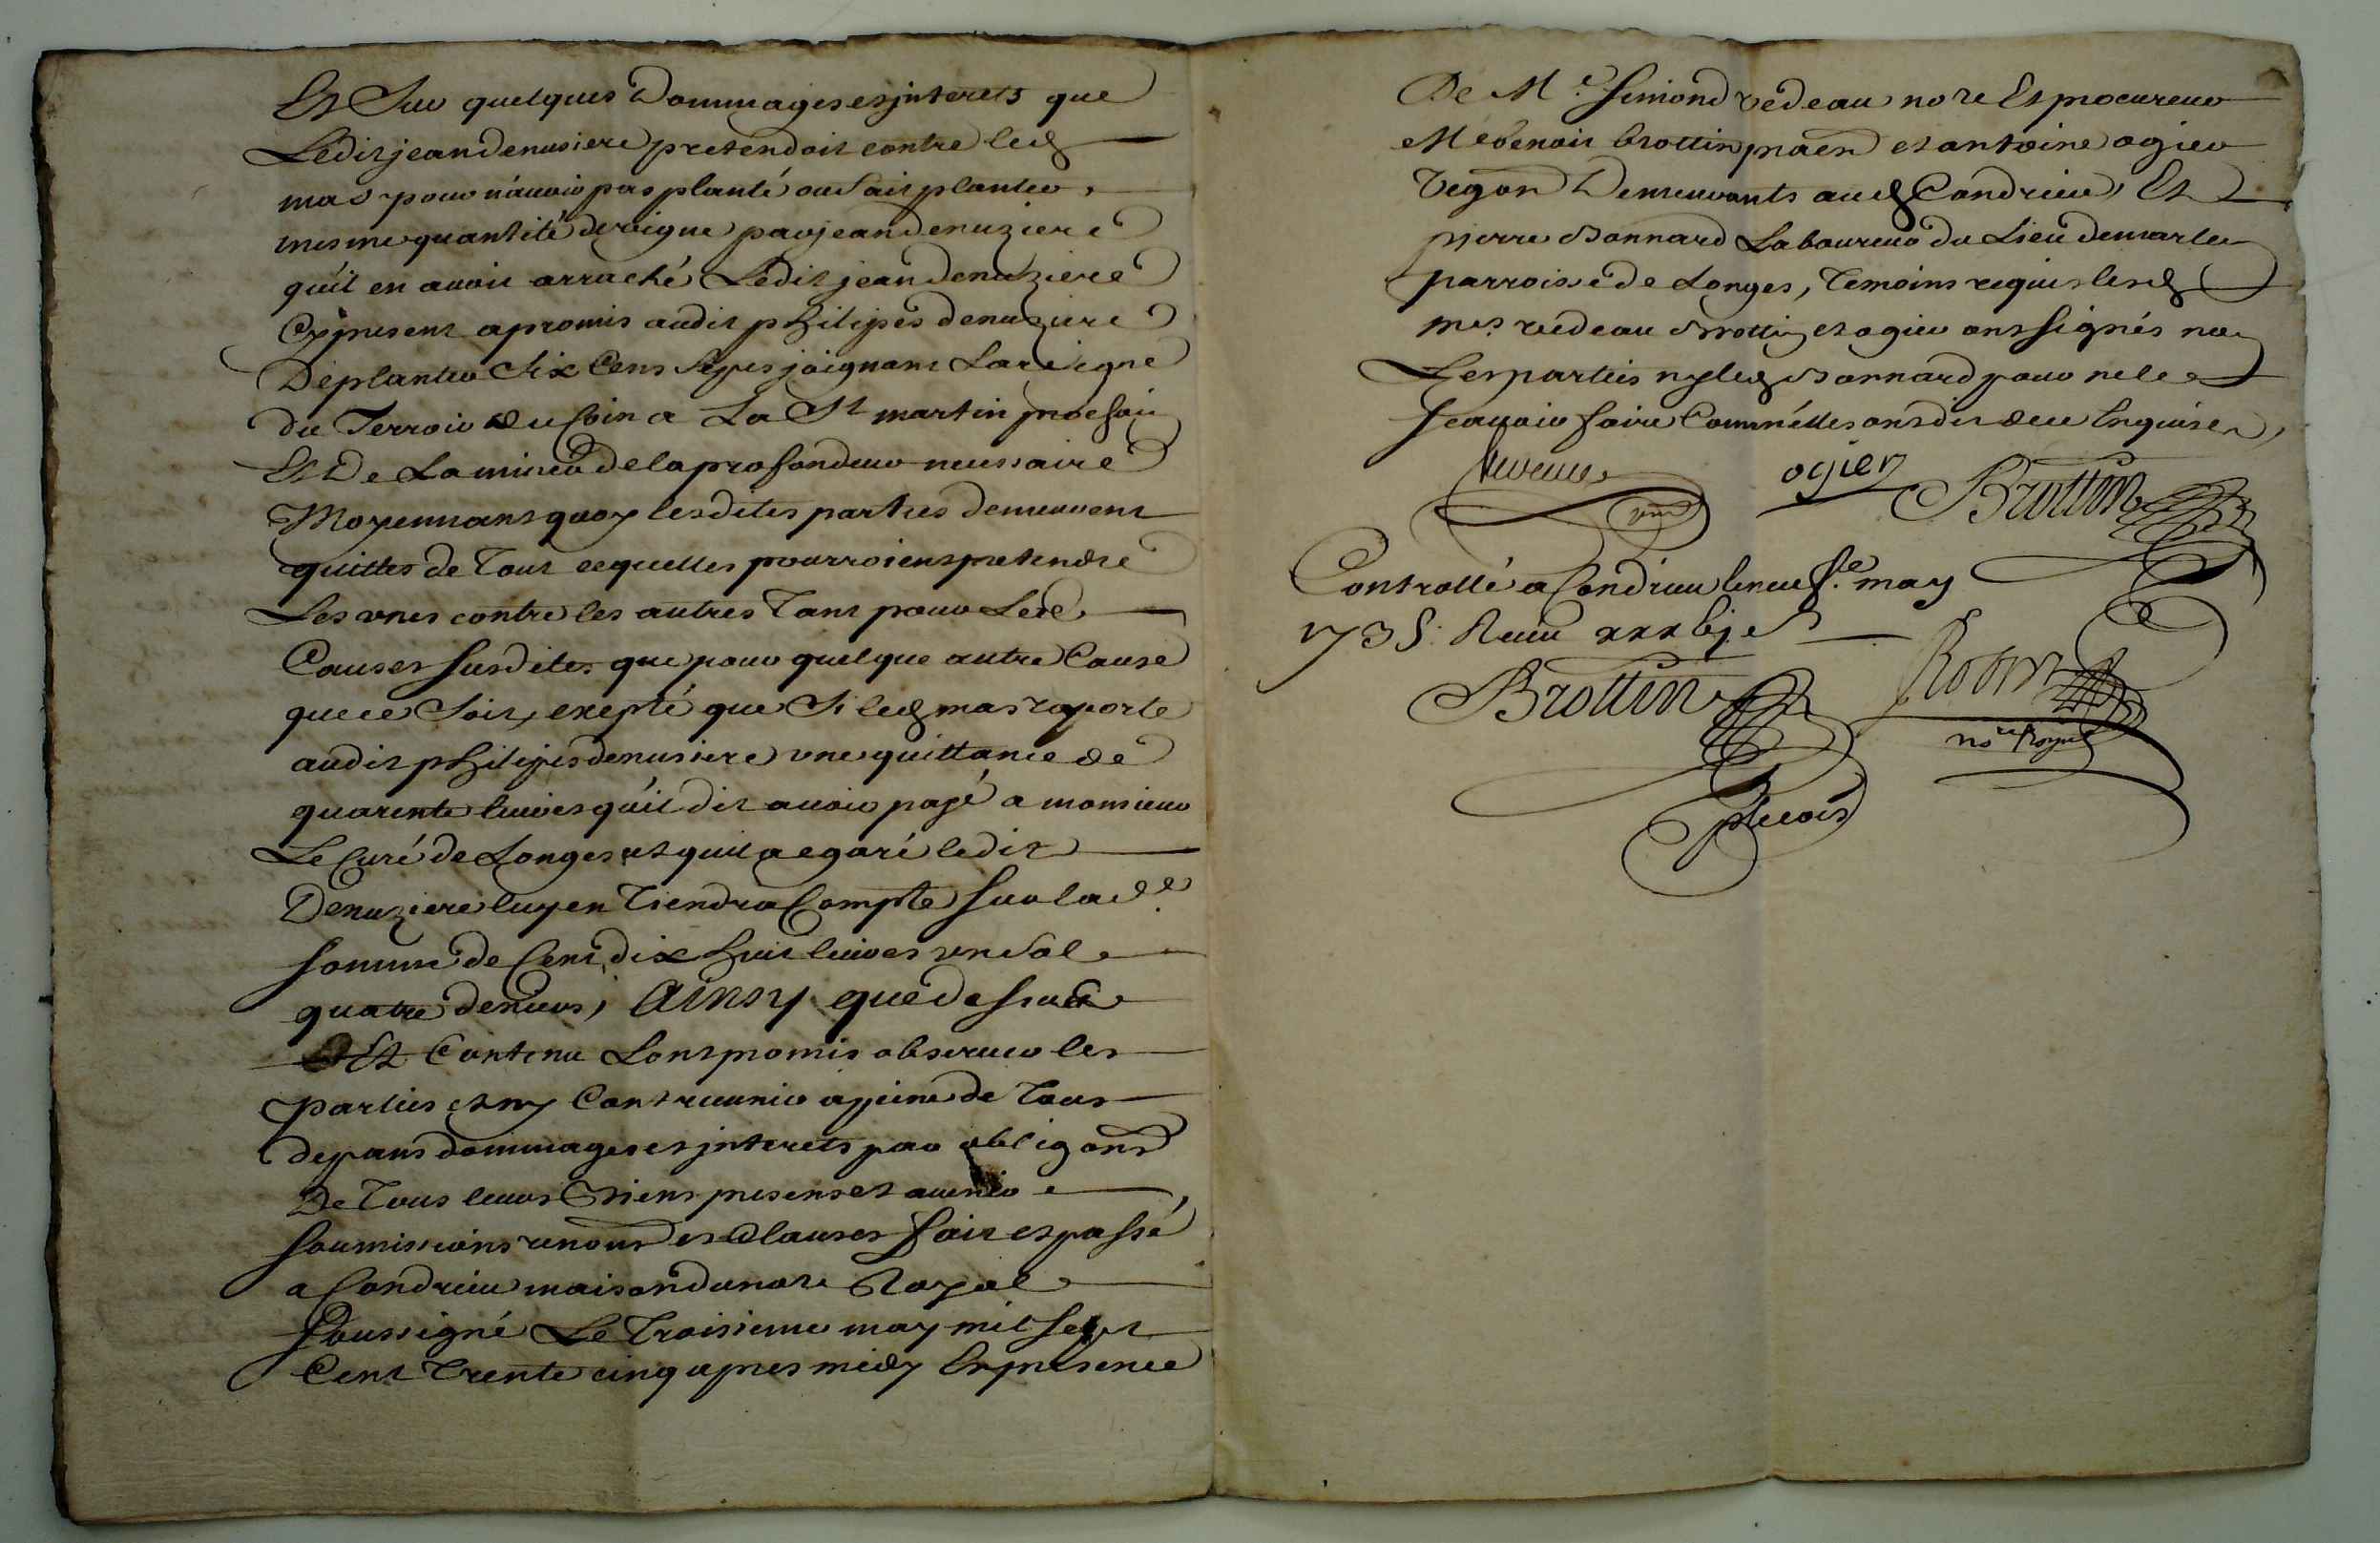 Et Sur quelques Dommages et jnterets que
Ledit jean denusiere pretendoit contre led
mas pour n'auoir pas planté ou fait planter
mesme quantité de vigne par jean denuziere
qu'il en auoit arraché Ledit jean denuziere
Cy present a promis audit philipes denuziere
De planter Six Cens Seps joignant La vigne
du Terroir du Coin a La St martin prochain
Et De La miner de la profondeur necessaire
Moyennant quoy lesdites parties demeurent
quittes de Tout ce quelles pourroient pretendre
Les unes contre les autres Tant pour Les
Causes Susdites que pour quelque autre Cause
que ce Soit, exepté que Si led mas raporte
audit philipes denusiere une quittance de
quarente liures qu'il dit auoir payé a monsieur
Le Curé de Longes et quil a egaré ledit
Denuziere luy en Tiendra Compte Sur lade
Somme de Cent dix huit liures un Sol
quatre deniers, Ainsy que dessus
Est Contenu Lont promis obseruer les
Parties et ny Contreuenir a peine de Tous
depans dommages et jnterets par obligaons
De Tous leurs Biens presens et auenir
Soumissions renons et Clauses fait et passé
a Condrieu maison du nore Royal
Soussigné Le Troisieme may mil Sept
Cent Trente cinq apres midy En presence
De Me Simond vedeau nore Et procureur
Me benoit brottin praen et antoine ogier
Vegon Demeurants aud Condrieu Et
pierre Bonnard Laboureur du Lieu de marlen
parroisse de Longes, Temoins requis lesd
mes vedeau Brottin et ogier ont Signés non
Les parties ny led Bonnard pour ne le
Scauoir faire Comm'elles ont dit de ce Enquises
ogier Brottin
Controllé a Condrieu le neufe may
1735. Receu xxxbj s
Brottin Robin
nore Royal